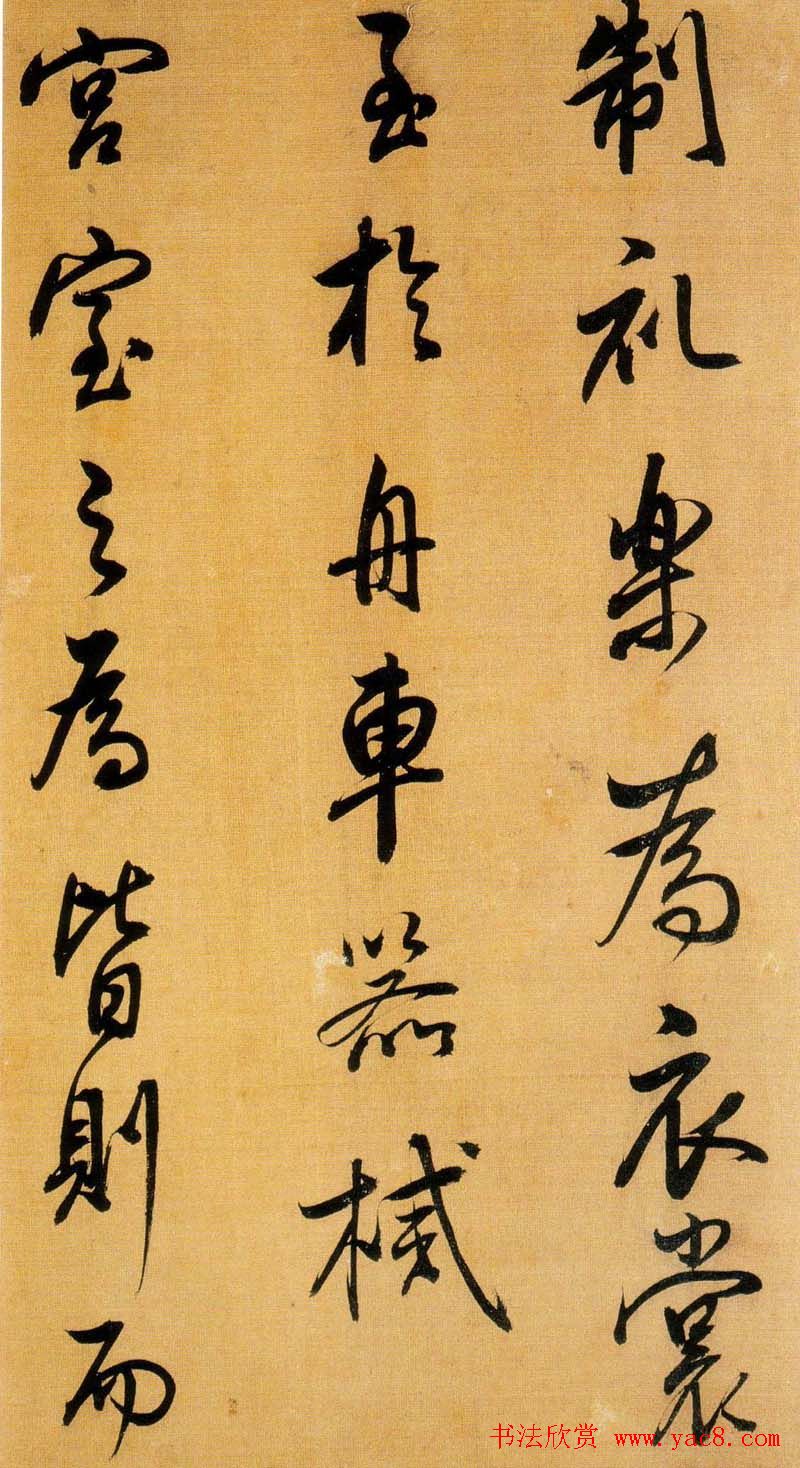 制礼樂為衣裳
至於舟車器械
宮室之為皆則而
书法欣赏 www.yac8.com